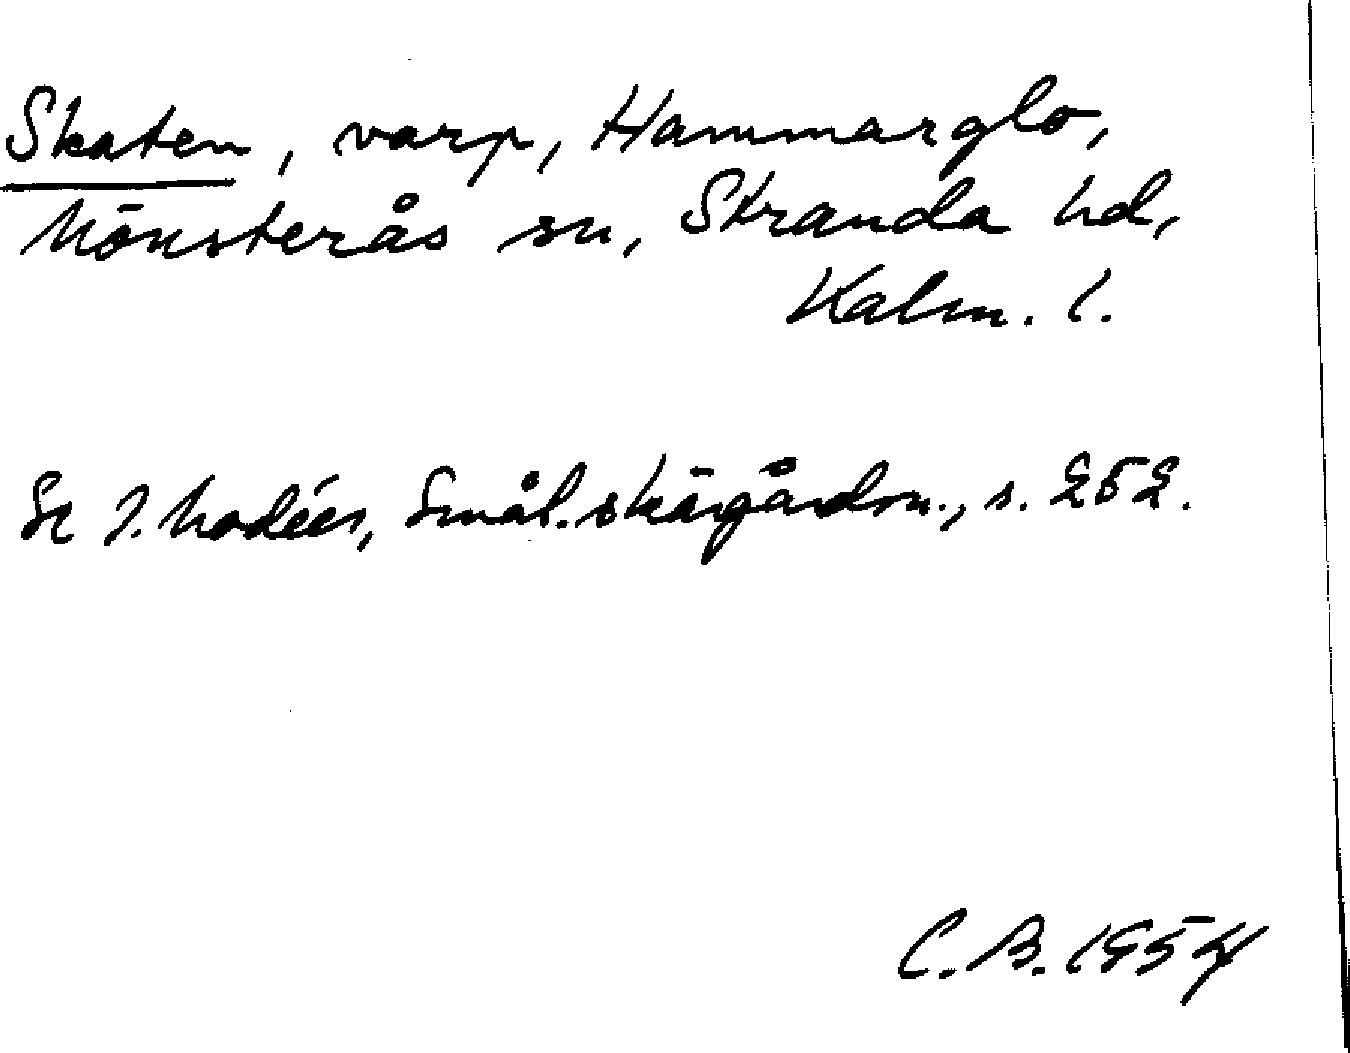 Skaten, varp, Hammarglo,
Mönsterås sn, Stranda hd,
Kalm. l.
Se I. Modéer, Smål. skärgårdsn., s. 252.
C.B. 1954